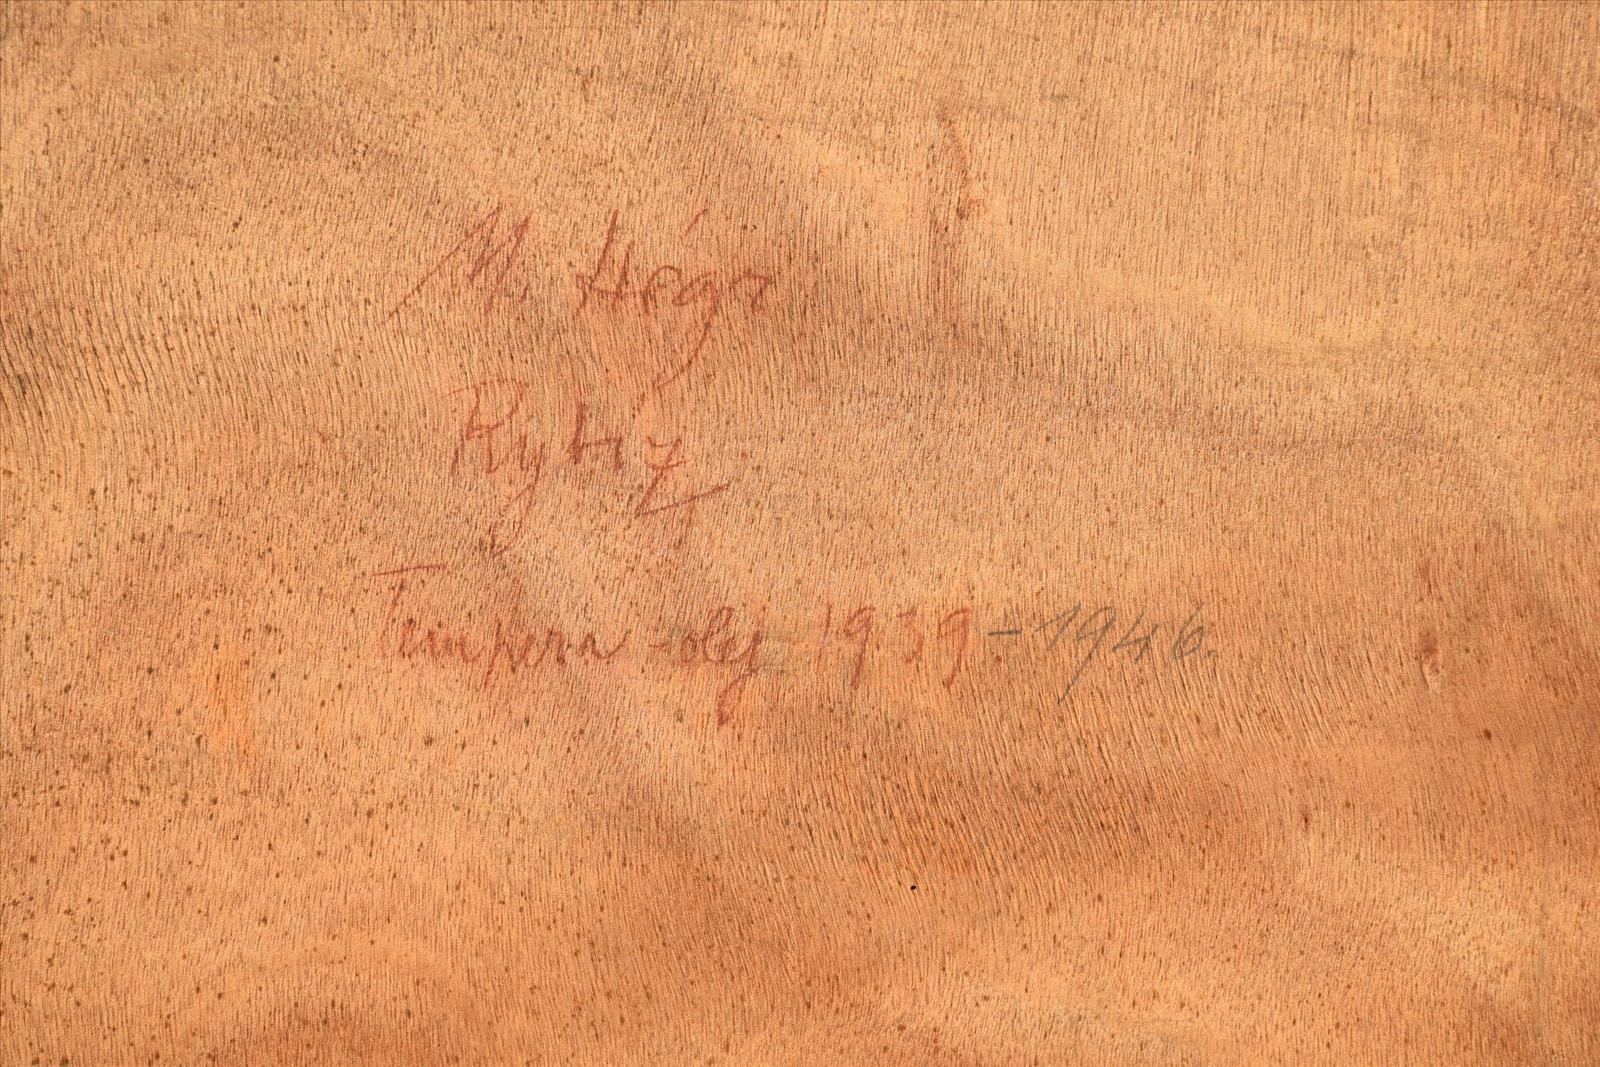 M. Hégr
Rybíz
Tempera - olej 1939 - 1946.